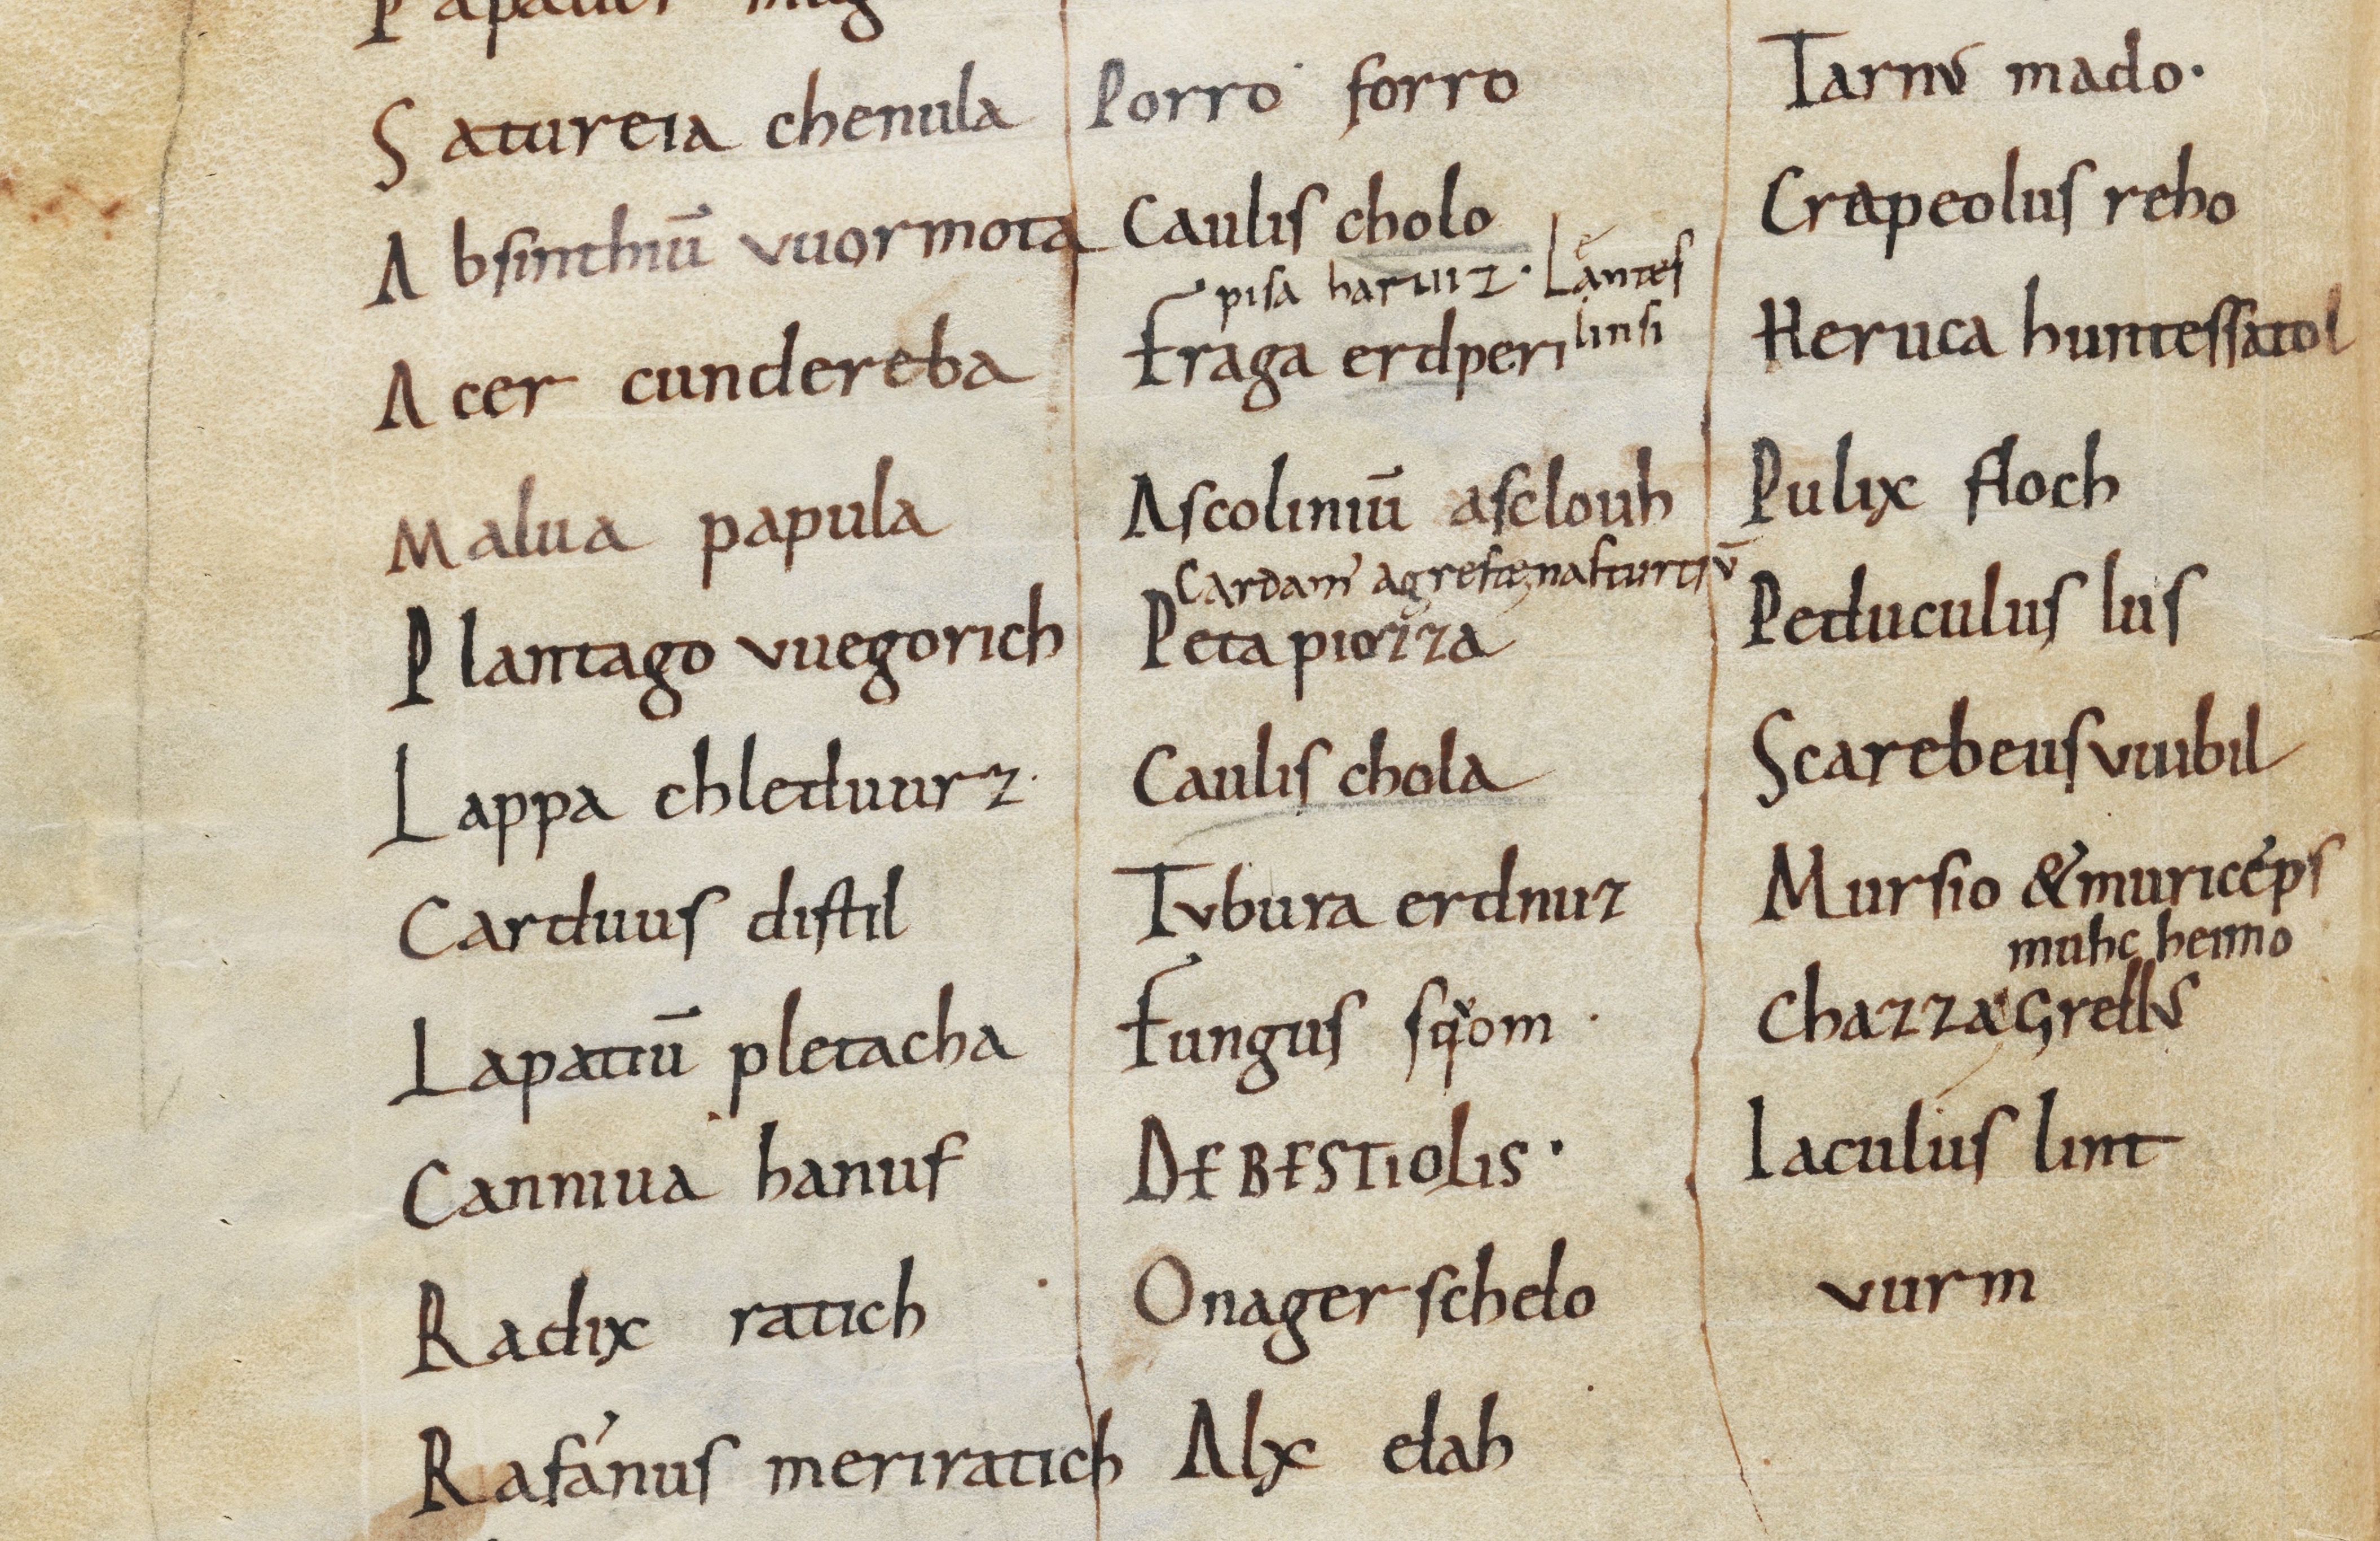 Satureia chenula
Absinthiū vuormota
Acer cundereba
Malua papula
Plantago vuegorich
Lappa chleduurz·
Carduus distil
Lapatiū pletacha
Canniua hanuf
Radix ratich
Rafánus meriratich
Porro forro
Caulis cholo
pisa haruuiz· Lentes
Fraga erdperi linsi
Ascoliniū asclouh
agreste nasturtiū
Peta piozza
Caulis chola
Tubura erdnuz
Fungus suom·
DE BESTIOLIS·
Onager schelo
Alx elah
Tarnus mado·
Crapeolus reho
Heruca huntessatol
Pulix floch
Peduculus lus
Scarebeus vuibil
Mursio & muriceps
heimo
Chazza Grellus
Iaculus lint
vurm